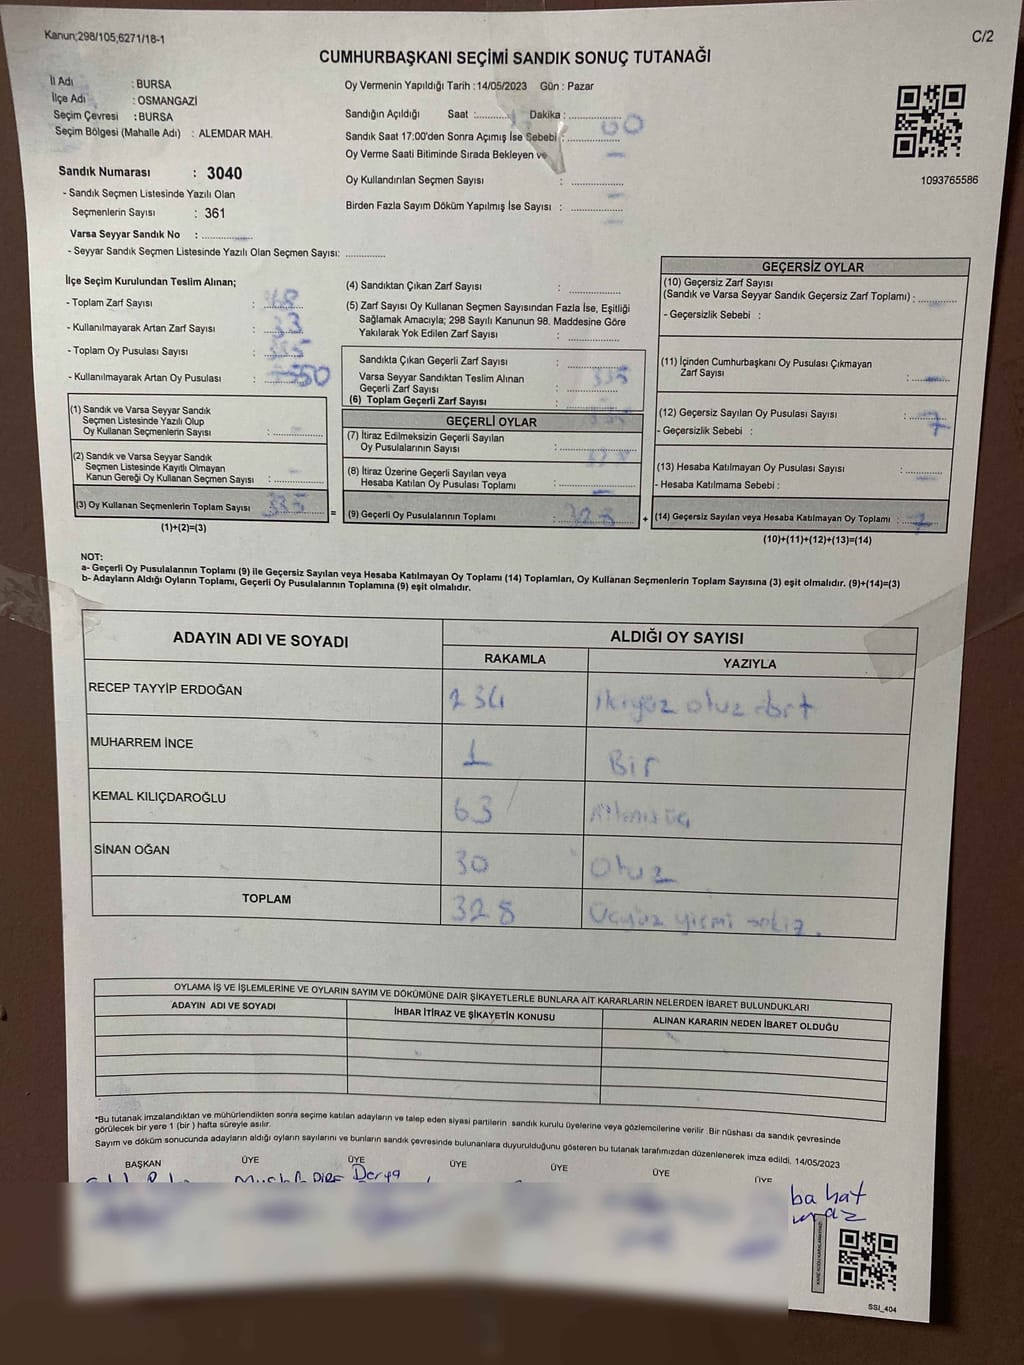 Kanun;298/105,6271/18-1
C/2
CUMHURBAŞKANI SEÇİMİ SANDIK SONUÇ TUTANAĞI
İl Adı : BURSA
İlçe Adı : OSMANGAZİ
Seçim Çevresi : BURSA
Seçim Bölgesi (Mahalle Adı) : ALEMDAR MAH.
Sandık Numarası : 3040
- Sandık Seçmen Listesinde Yazılı Olan
Seçmenlerin Sayısı : 361
Varsa Seyyar Sandık No :
- Seyyar Sandık Seçmen Listesinde Yazılı Olan Seçmen Sayısı:
Oy Vermenin Yapıldığı Tarih :14/05/2023 Gün : Pazar
Sandığın Açıldığı Saat : Dakika : 00
Sandık Saat 17:00'den Sonra Açımış İse Sebebi :
Oy Verme Saati Bitiminde Sırada Bekleyen ve
Oy Kullandırılan Seçmen Sayısı :
Birden Fazla Sayım Döküm Yapılmış İse Sayısı :
1093765586
İlçe Seçim Kurulundan Teslim Alınan;
- Toplam Zarf Sayısı :
- Kullanılmayarak Artan Zarf Sayısı : 33
- Toplam Oy Pusulası Sayısı :
- Kullanılmayarak Artan Oy Pusulası : 50
(1) Sandık ve Varsa Seyyar Sandık
Seçmen Listesinde Yazılı Olup
Oy Kullanan Seçmenlerin Sayısı :
(2) Sandık ve Varsa Seyyar Sandık
Seçmen Listesinde Kayıtlı Olmayan
Kanun Gereği Oy Kullanan Seçmen Sayısı :
(3) Oy Kullanan Seçmenlerin Toplam Sayısı : 335
(1)+(2)=(3)
(4) Sandıktan Çıkan Zarf Sayısı :
(5) Zarf Sayısı Oy Kullanan Seçmen Sayısından Fazla İse, Eşitliği
Sağlamak Amacıyla; 298 Sayılı Kanunun 98. Maddesine Göre
Yakılarak Yok Edilen Zarf Sayısı :
Sandıkta Çıkan Geçerli Zarf Sayısı :
Varsa Seyyar Sandıktan Teslim Alınan
Geçerli Zarf Sayısı : 335
(6) Toplam Geçerli Zarf Sayısı :
GEÇERLİ OYLAR
(7) İtiraz Edilmeksizin Geçerli Sayılan
Oy Pusulalarının Sayısı :
(8) İtiraz Üzerine Geçerli Sayılan veya
Hesaba Katılan Oy Pusulası Toplamı :
= (9) Geçerli Oy Pusulalarının Toplamı : 328
GEÇERSİZ OYLAR
(10) Geçersiz Zarf Sayısı
(Sandık ve Varsa Seyyar Sandık Geçersiz Zarf Toplamı) :
- Geçersizlik Sebebi :
(11) İçinden Cumhurbaşkanı Oy Pusulası Çıkmayan
Zarf Sayısı :
(12) Geçersiz Sayılan Oy Pusulası Sayısı : 7
- Geçersizlik Sebebi :
(13) Hesaba Katılmayan Oy Pusulası Sayısı :
- Hesaba Katılmama Sebebi :
+ (14) Geçersiz Sayılan veya Hesaba Katılmayan Oy Toplamı : 7
(10)+(11)+(12)+(13)=(14)
NOT:
a- Geçerli Oy Pusulalarının Toplamı (9) ile Geçersiz Sayılan veya Hesaba Katılmayan Oy Toplamı (14) Toplamları, Oy Kullanan Seçmenlerin Toplam Sayısına (3) eşit olmalıdır. (9)+(14)=(3)
b- Adayların Aldığı Oyların Toplamı, Geçerli Oy Pusulalarının Toplamına (9) eşit olmalıdır.
ADAYIN ADI VE SOYADI ALDIĞI OY SAYISI
RAKAMLA YAZIYLA
RECEP TAYYİP ERDOĞAN 234 ikiyüz otuz dört
MUHARREM İNCE 1 Bir
KEMAL KILIÇDAROĞLU 63 Altmış üç
SİNAN OĞAN 30 Otuz
TOPLAM 328 Üçyüz yirmi sekiz.
OYLAMA İŞ VE İŞLEMLERİNE VE OYLARIN SAYIM VE DÖKÜMÜNE DAİR ŞİKAYETLERLE BUNLARA AİT KARARLARIN NELERDEN İBARET BULUNDUKLARI
ADAYIN ADI VE SOYADI İHBAR İTİRAZ VE ŞİKAYETİN KONUSU ALINAN KARARIN NEDEN İBARET OLDUĞU
*Bu tutanak imzalandıktan ve mühürlendikten sonra seçime katılan adayların ve talep eden siyasi partilerin sandık kurulu üyelerine veya gözlemcilerine verilir .Bir nüshası da sandık çevresinde
görülecek bir yere 1 (bir ) hafta süreyle asılır.
Sayım ve döküm sonucunda adayların aldığı oyların sayılarını ve bunların sandık çevresinde bulunanlara duyurulduğunu gösteren bu tutanak tarafımızdan düzenlenerek imza edildi. 14/05/2023
BAŞKAN ÜYE ÜYE ÜYE ÜYE ÜYE ÜYE
Derya
SSI_404